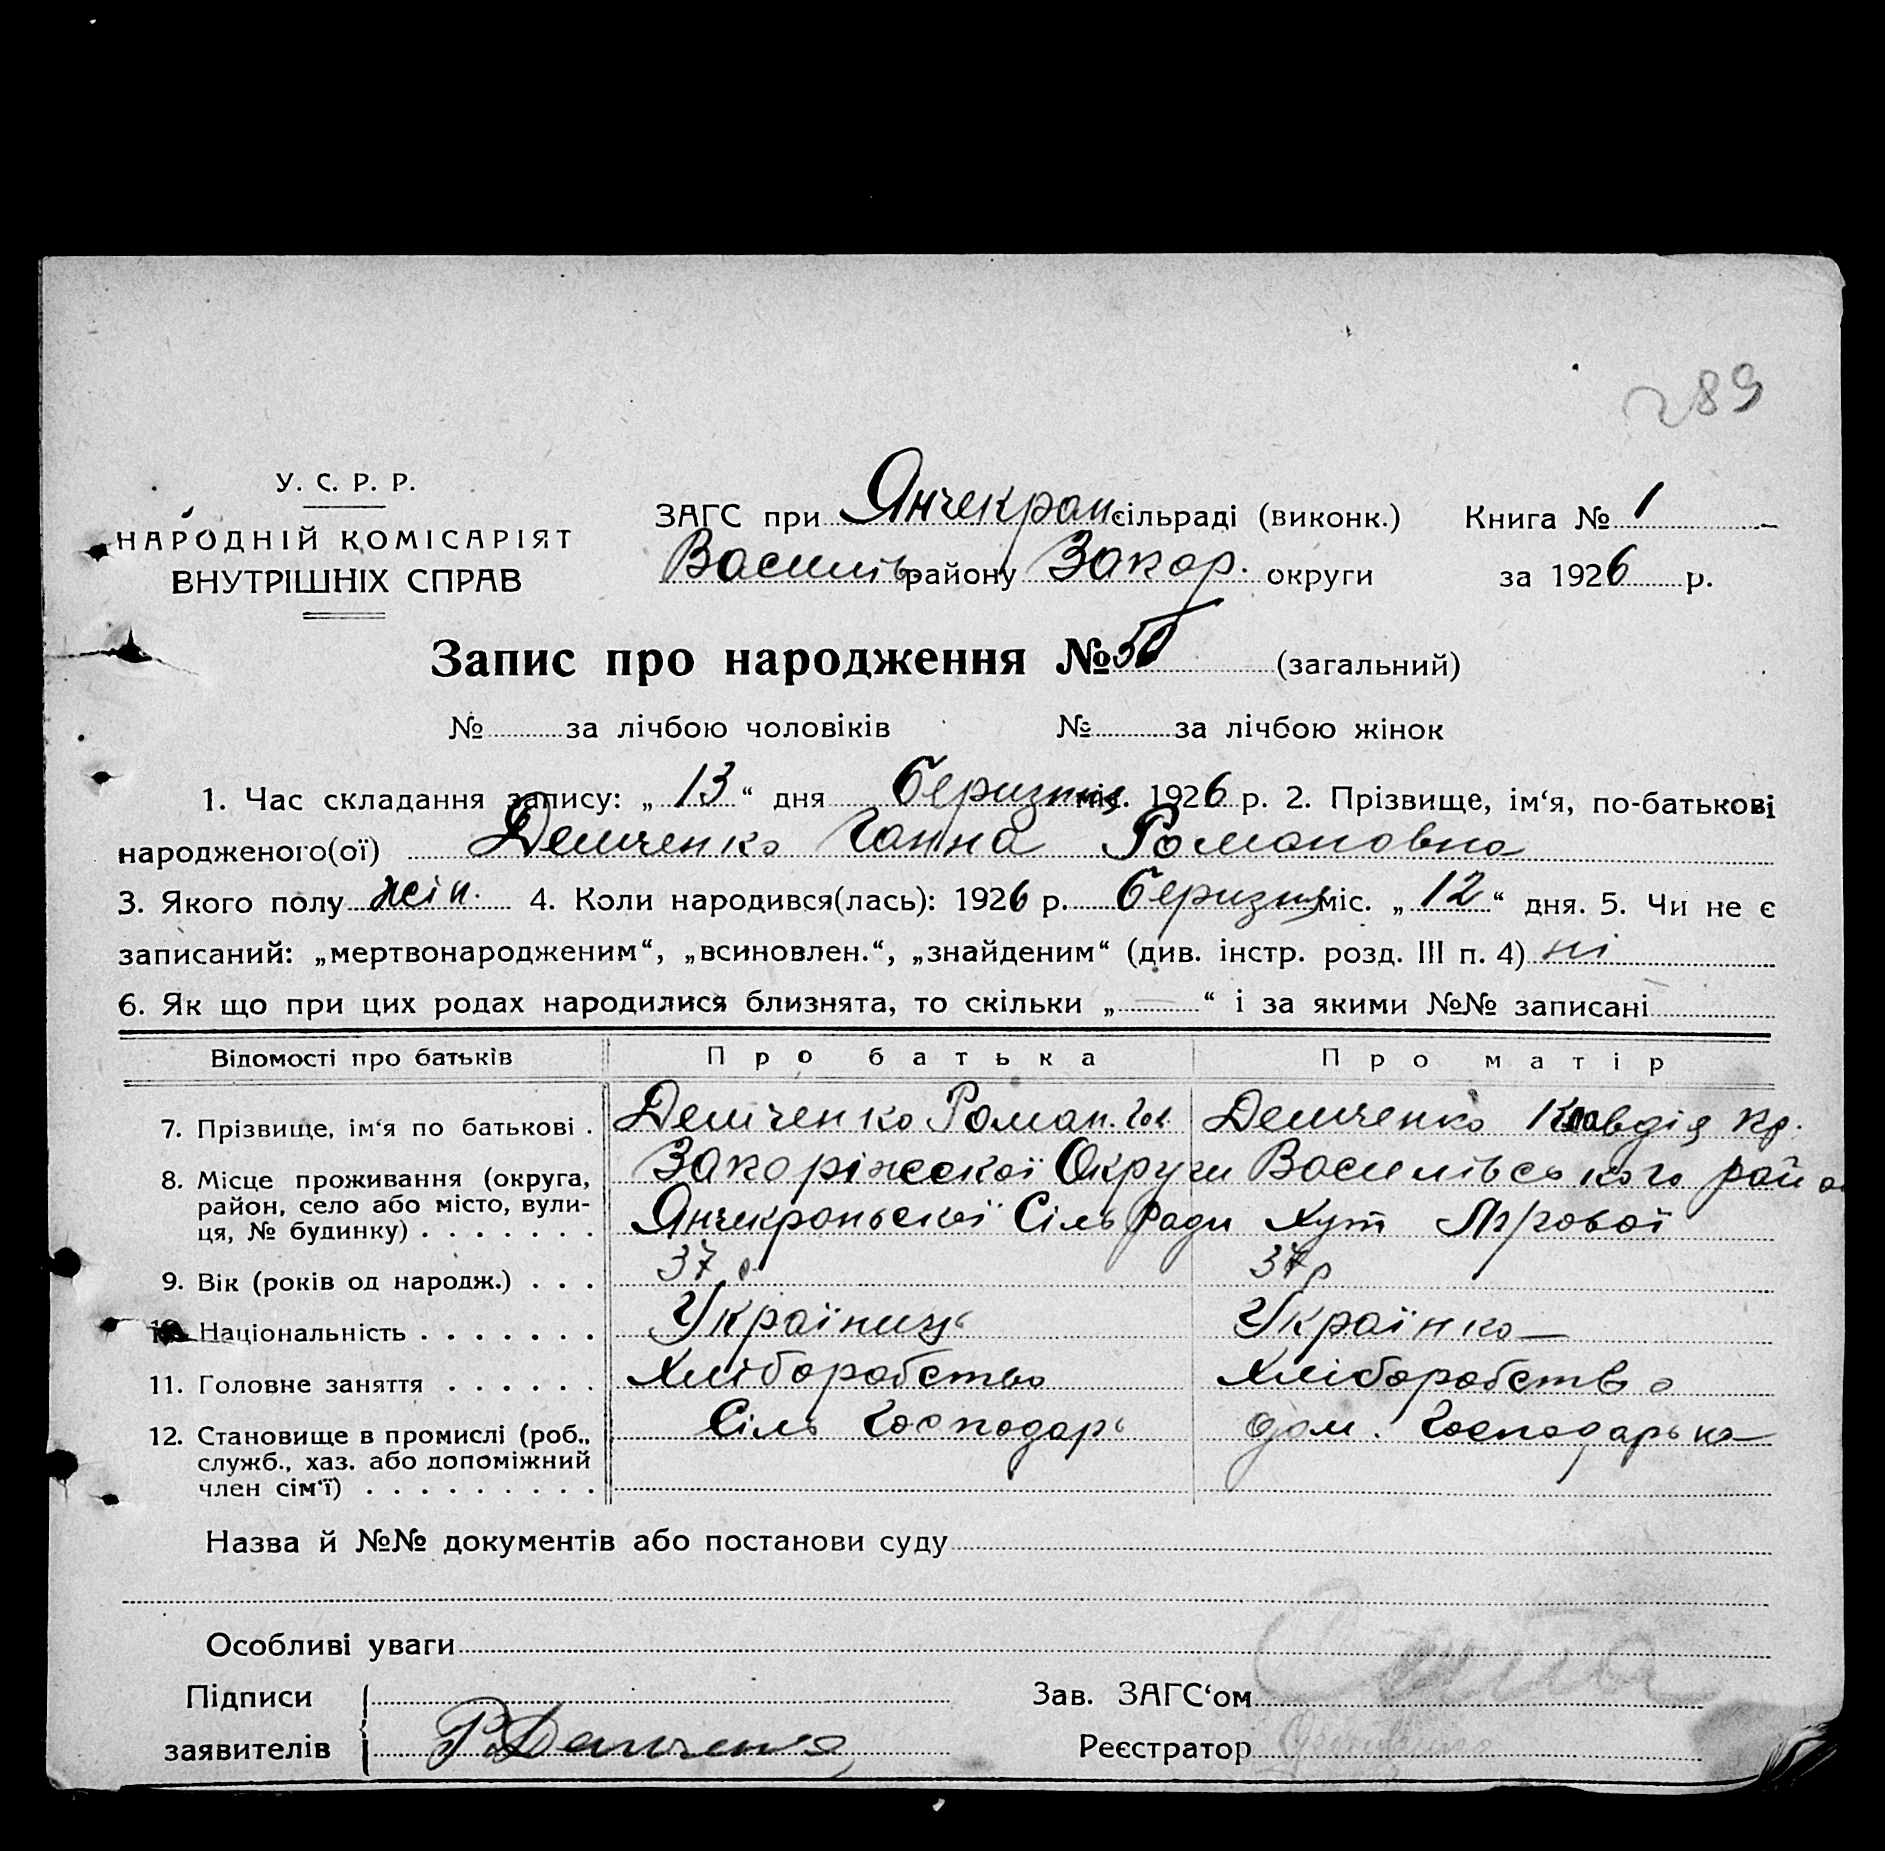 289
У. С. Р. Р.
НАРОДНІЙ КОМІСАРІЯТ
ВНУТРІШНІХ СПРАВ
ЗАГС при Янчекрак сільраді (виконк.) Книга № 1
Василів району Запор. округи за 1926 р.
Запис про народження № 50 (загальний)
№ за лічбою чоловіків № за лічбою жінок
1. Час складання запису: „ 13 “ дня беризня міс. 1926 р. 2. Прізвище, ім‘я, по-батькові
народженого(ої) Демченко Ганна Романовна
3. Якого полу жін. 4. Коли народився(лась): 1926 р. беризня міс. „ 12 “ дня. 5. Чи не є
записаний: „мертвонародженим“, „всиновлен.“, „знайденим“ (див. інстр. розд. III п. 4) ні
6. Як що при цих родах народилися близнята, то скільки „ — “ і за якими №№ записані
Відомості про батьків Про батька Про матір
7. Прізвище, ім‘я по батькові . Демченко Роман. Демченко Клавдія Кр.
8. Місце проживання (округа, Запоріжської Округи Василівського рай
район, село або місто, вули-
ця, № будинку) . . . . . . . Янчекракської Сіль Ради Хут
9. Вік (років од народж.) . . . 37 р 37 р
10. Національність . . . . . . . Україниць Українка
11. Головне заняття . . . . . . Хліборобство Хліборобство
12. Становище в промислі (роб., Сіль Господарь дом. Господарька
служб., хаз. або допоміжний
член сім‘ї) . . . . . . . . . .
Назва й №№ документів або постанови суду
Особливі уваги
Підписи Зав. ЗАГС‘ом
заявителів Р Демченко Реєстратор